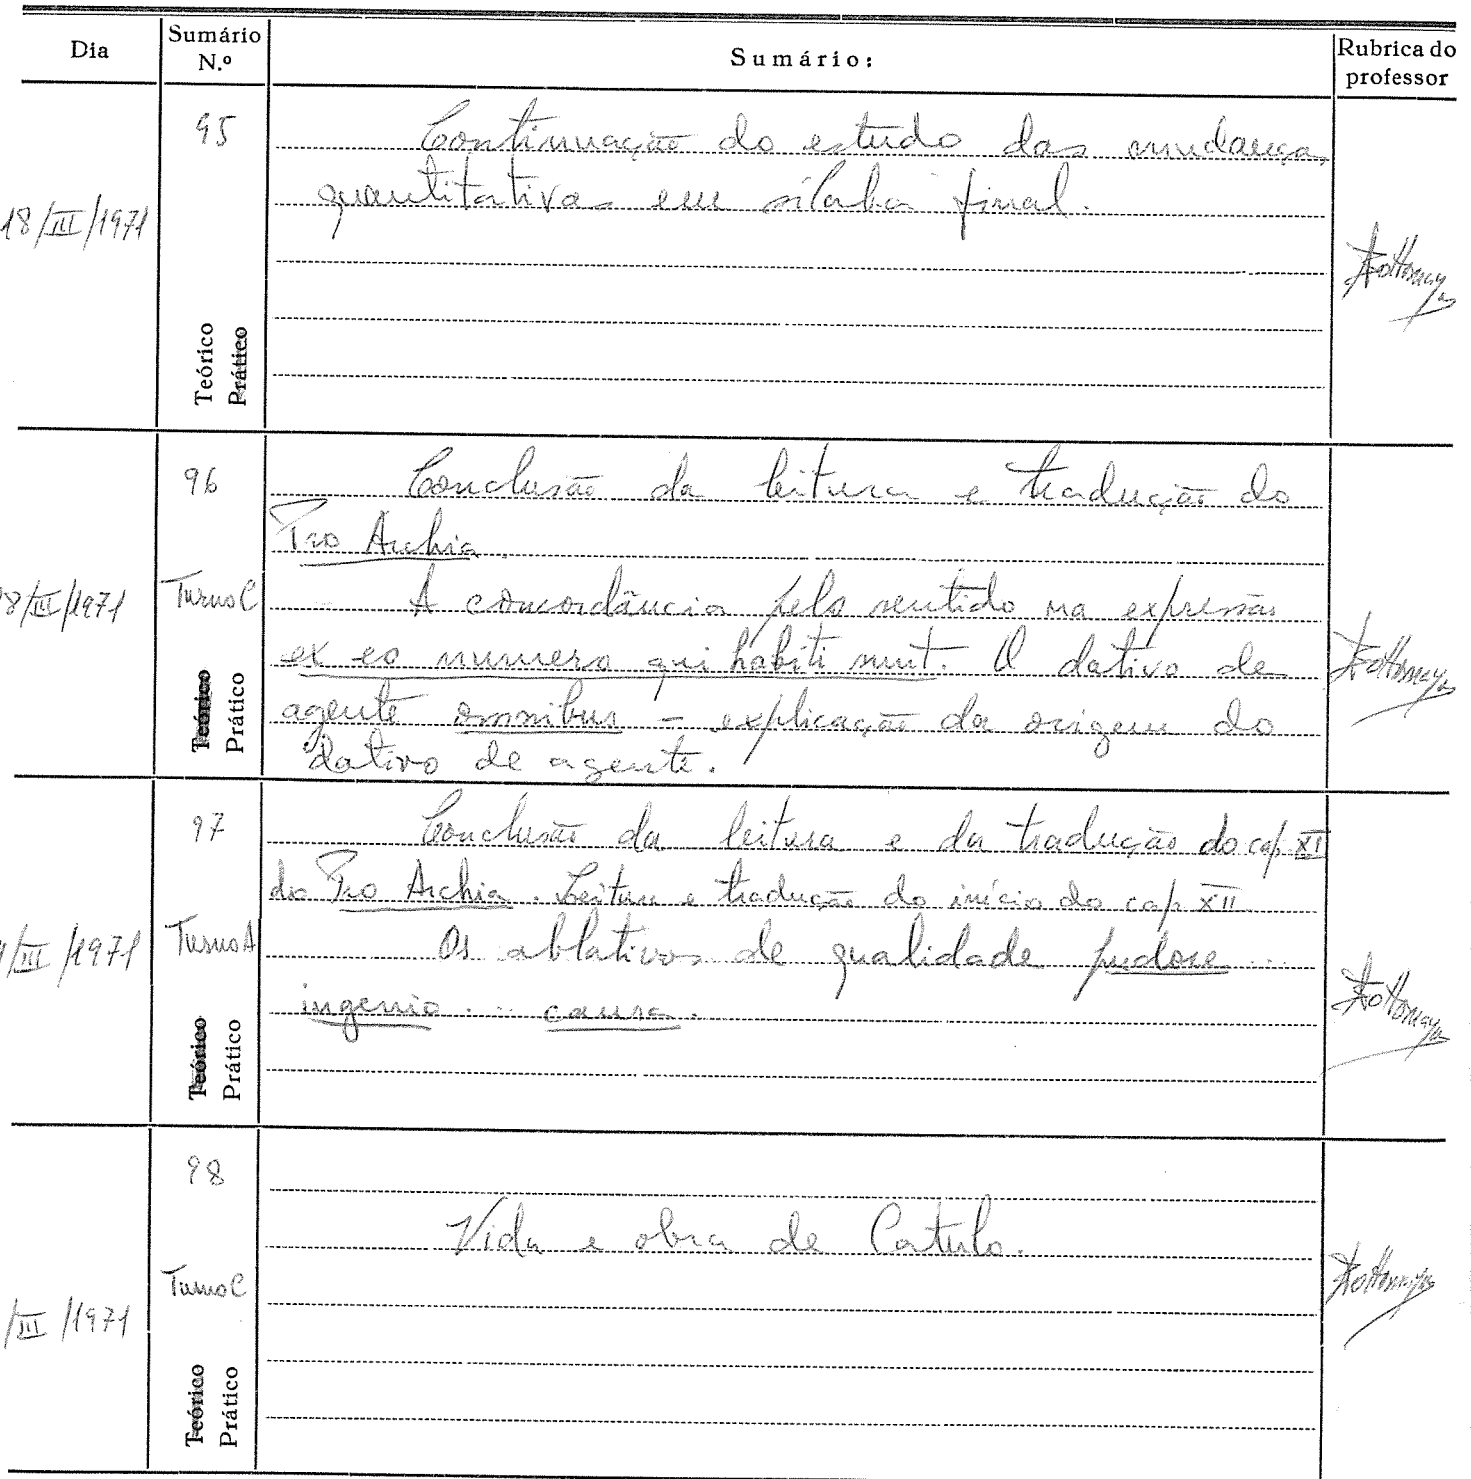 Dia
Sumário N.º
Sumário:
Rubrica do professor
18/III/1971
95
Teórico
Prático
Continuação do estudo das mudança
quantitativas em sílaba final.
8/III/1971
96
Turno C
Teórico
Prático
Conclusão da leitura e tradução do
Pro Archia.
A concordância pelo sentido na expressão
ex eo numero qui habiti sunt. O dativo de
agente omnibus – explicação da origem do
dativo de agente.
/III/1971
97
Turno A
Teórico
Prático
Conclusão da leitura e da tradução do cap. XI
do Pro Archia. Leitura e tradução do início do cap. XII
Os ablativos de qualidade pudore ...
ingenio ... causa.
/III/1971
98
Turno C
Teórico
Prático
Vida e obra de Catulo.